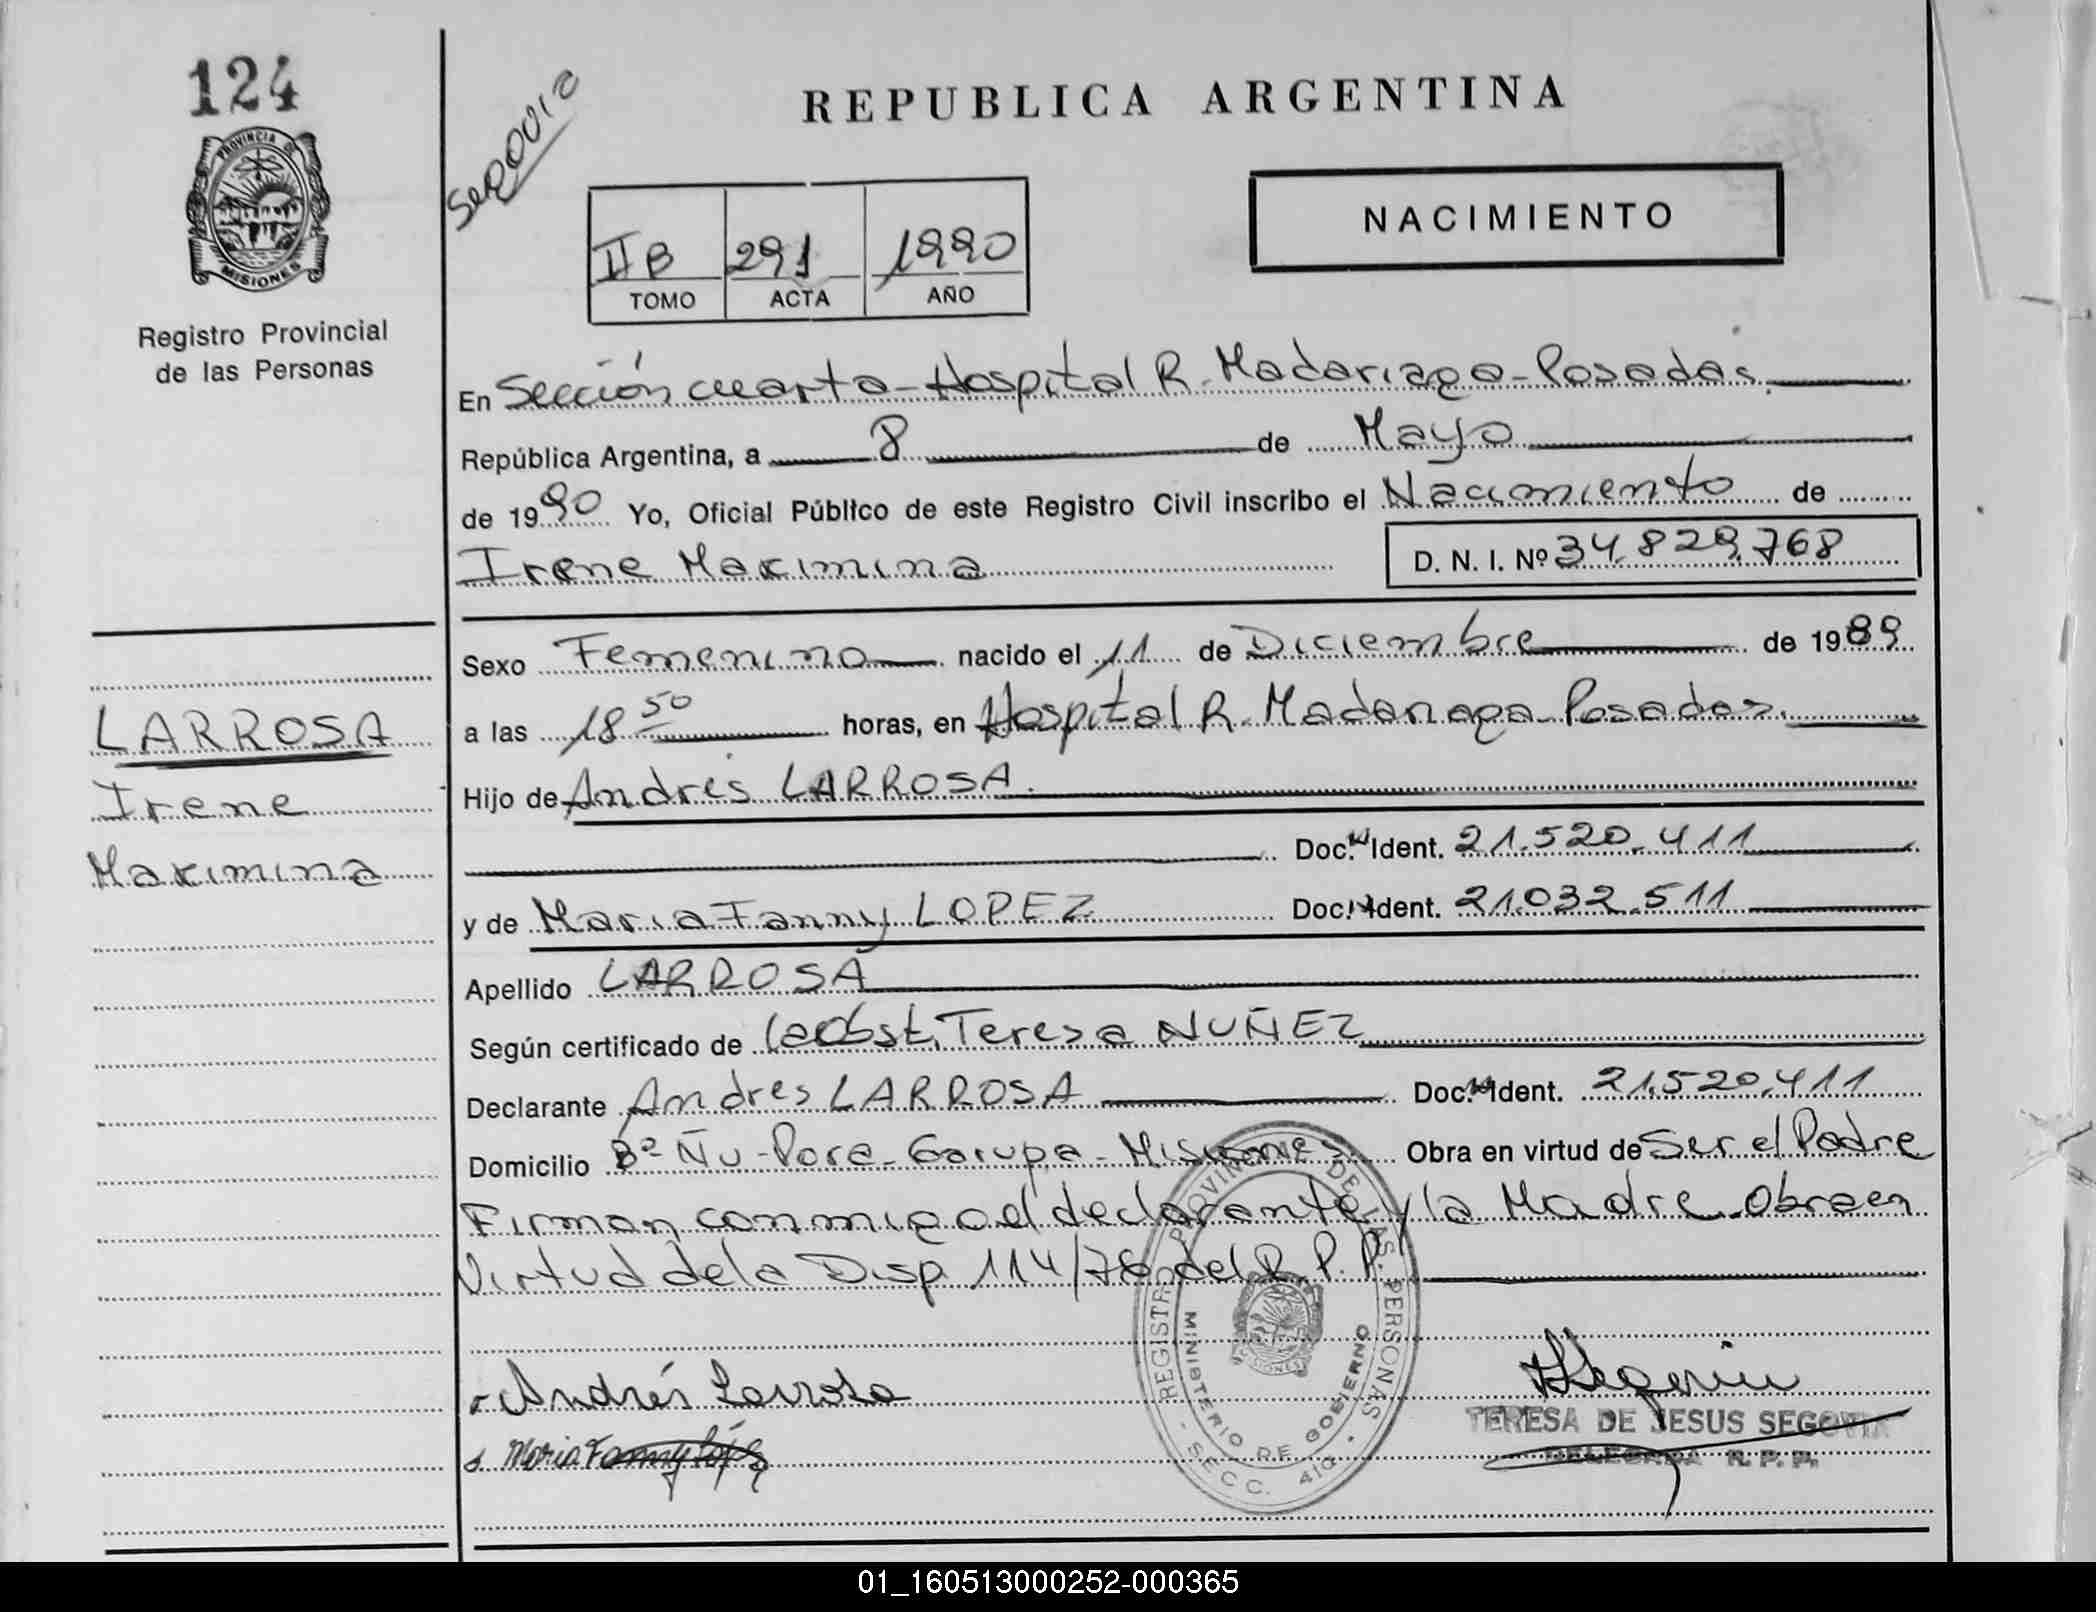 124
PROVINCIA DE
MISIONES
Registro Provincial
de las Personas
Segovia
REPUBLICA ARGENTINA
NACIMIENTO
II B 291 1990
TOMO ACTA AÑO
En Sección cuarta - Hospital R. Madariaga - Posadas.
República Argentina, a 8 de Mayo
de 1990 Yo, Oficial Público de este Registro Civil inscribo el Nacimiento de
Irene Maximina D. N. I. Nº 34.829.768
Sexo Femenino nacido el 11 de Diciembre de 1989
LARROSA
Irene
Maximina
a las 18 50 horas, en Hospital R. Madariaga - Posadas.
Hijo de Andrés LARROSA.
Doc. N Ident. 21.520.411
y de Maria Fanny LOPEZ Doc. N Ident. 21.032.511
Apellido LARROSA
Según certificado de la Obst. Teresa NUÑEZ
Declarante Andres LARROSA Doc. N Ident. 21.520.411
Domicilio Bº Ñu-Pora - Garupa - Misiones Obra en virtud de Ser el Padre
Firman conmigo el declarante y la Madre. Obra en
Virtud de la Disp 114/76 del R.P.P.
Andrés Larrosa
Maria Fanny López
REGISTRO PROVINCIAL DE LAS PERSONAS
MINISTERIO DE GOBIERNO
MISIONES
- SECC. 4ta -
TSegovia
TERESA DE JESUS SEGOVIA
DELEGADA R. P. P.
01_160513000252-000365